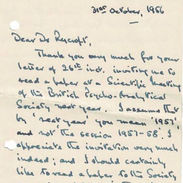 31st October, 1956
Dear Dr Rycroft,
Thank you very much for your
letter of 26th inst. inviting me to
read a paper at a Scientific meeting
of the British Psycho-Analytical
Society next year. I assume that
by 'next year' you mean '1957'
and not the session 1957-58. I
appreciate the invitation very much
indeed; and I should certainly
like to read a paper to the Society